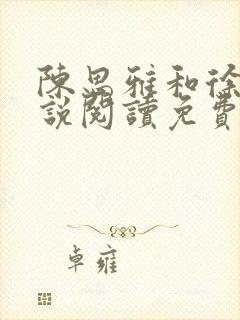 陳思雅和徐
說閱讀免費
卓雍